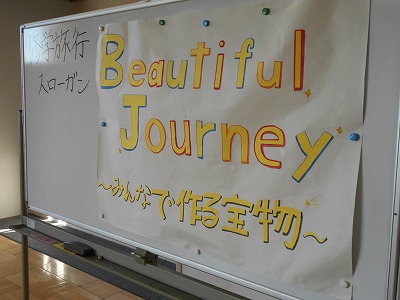 修学旅行
スローガン
Beautiful
Journey
～みんなで作る宝物～